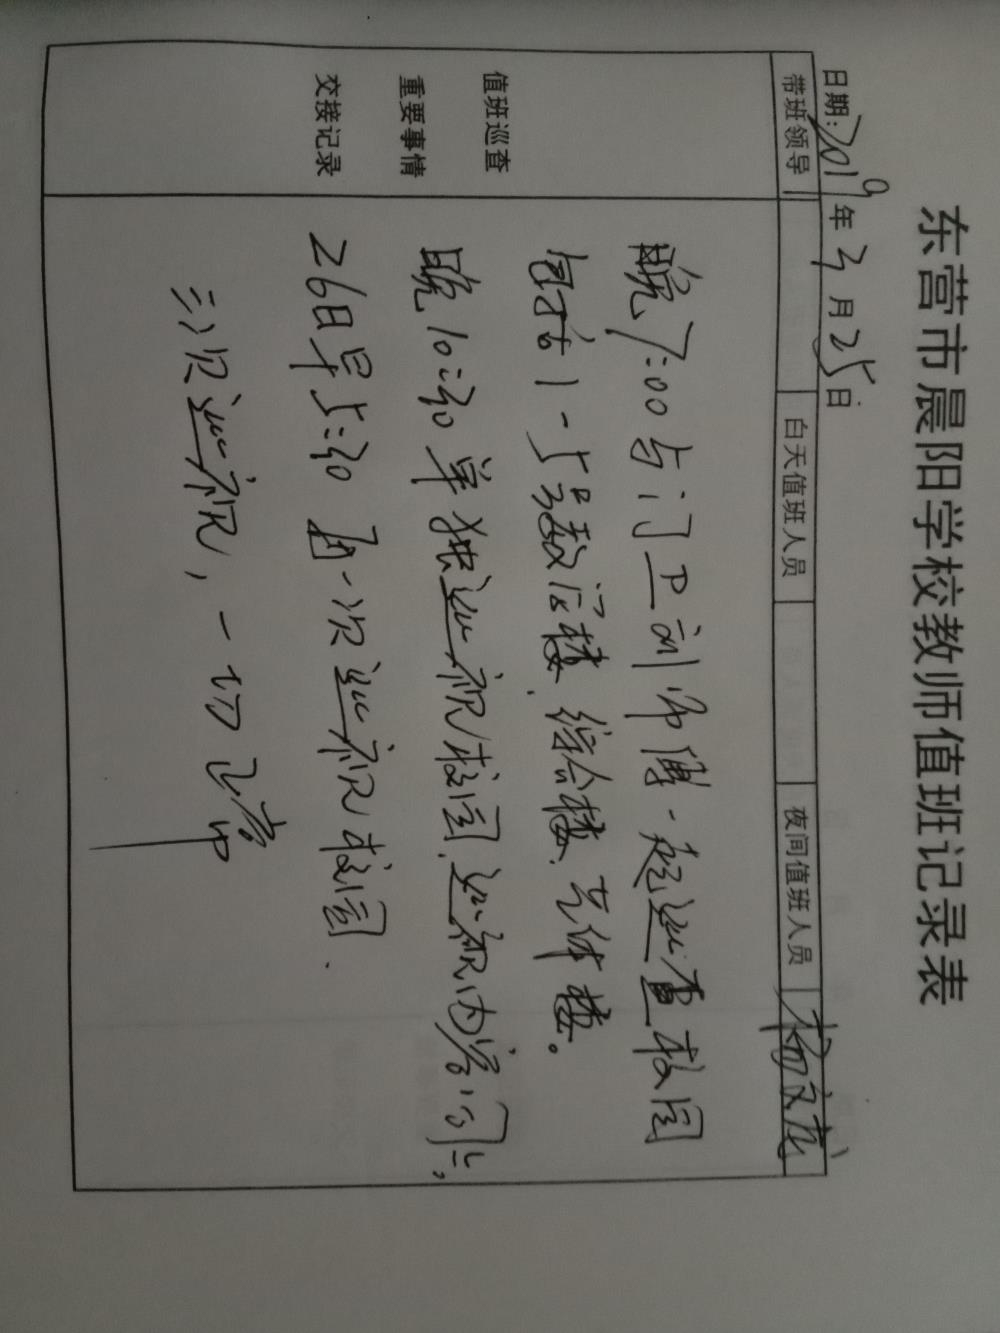 东营市晨阳学校教师值班记录表
日期:2019年3月25日
带班领导 白天值班人员 夜间值班人员 杨文彪
值班巡查
重要事情
交接记录
晚7:00与门卫刘师傅一起巡查校园
包括1-5号教学楼、综合楼、艺体楼。
晚10:30单独巡视校园,巡视内容同上,
26日早5:30再一次巡视校园.
三次巡视,一切正常